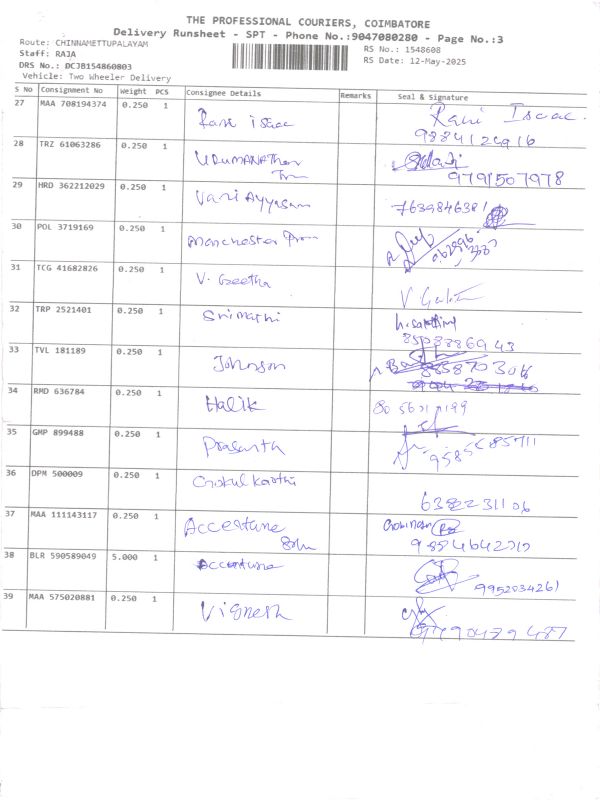 THE PROFESSIONAL COURIERS, COIMBATORE
Delivery Runsheet - SPT - Phone No.:9047080280 - Page No.:3
Route: CHINNAMETTUPALAYAM
Staff: RAJA RS No.: 1548608
DRS No.: DCJB154860803 RS Date: 12-May-2025
Vehicle: Two Wheeler Delivery
S No Consignment No Weight PCS Consignee Details Remarks Seal & Signature
27 MAA 708194374 0.250 1 Ravi Isaac Ravi Isaac
9884124916
28 TRZ 61063286 0.250 1
9791507978
29 HRD 362212029 0.250 1 Vani Ayyasam 7639846381
30 POL 3719169 0.250 1 Manchester
31 TCG 41682826 0.250 1 V. Geetha
32 TRP 2521401 0.250 1 Srimathi
33 TVL 181189 0.250 1 Johnson
34 RMD 636784 0.250 1 Halik
35 GMP 899488 0.250 1 Prasanth 9585685711
36 DPM 500009 0.250 1 Gokul Karthi
6382231106
37 MAA 111143117 0.250 1 Accenture
38 BLR 590589049 5.000 1 Accenture 9952034261
39 MAA 575020881 0.250 1 Vignesh